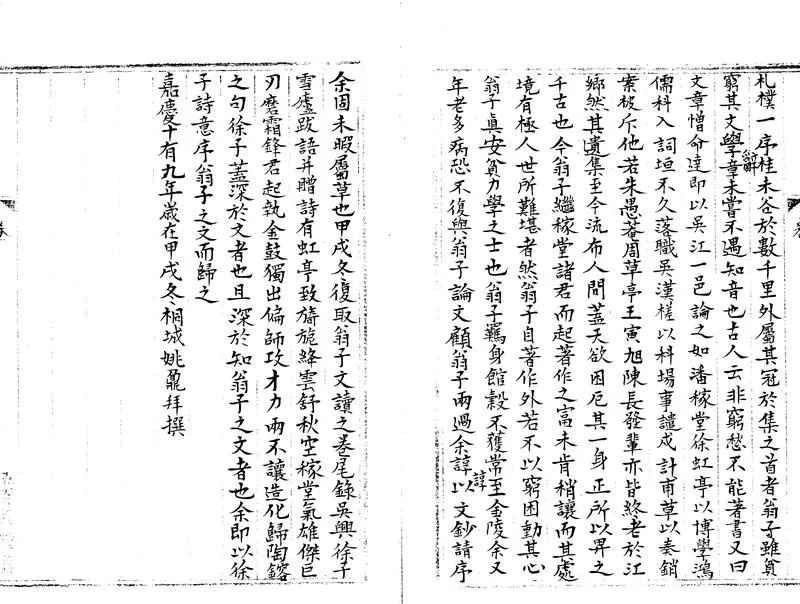 札樸一序桂未谷於數千里外屬其冠於集之首者翁子雖貧
窮其文學辭章未嘗不遇知音也古人云非窮愁不能著書又曰
文章憎命達即以吳江一邑論之如潘稼堂徐虹亭以博學鴻
儒科入詞垣不久落職吳漢槎以科場事譴戍計甫草以奏銷
案被斥他若朱愚菴周草亭王寅旭陳長發輩亦皆終老於江
鄉然其遺集至今流布人間蓋天欲困厄其一身正所以畀之
千古也今翁子繼稼堂諸君而起著作之富未肯稍讓而其處
境有極人世所難堪者然翁子自著作外若不以窮困動其心
翁子眞安貧力學之士也翁子羈身館穀不獲常至金陵余又
年老多病恐不復與翁子論文顧翁子兩過余諄諄以文鈔請序
余固未暇屬草也甲戌冬復取翁子文讀之卷尾錄吳興徐子
雪廬跋語并贈詩有虹亭致旖旎絳雲舒秋空稼堂氣雄傑巨
刃磨霜鋒君起執金鼓獨出偏師攻才力兩不讓造化歸陶鎔
之句徐子蓋深於文者也且深於知翁子之文者也余即以徐
子詩意序翁子之文而歸之
嘉慶十有九年歲在甲戌冬桐城姚鼐拜撰